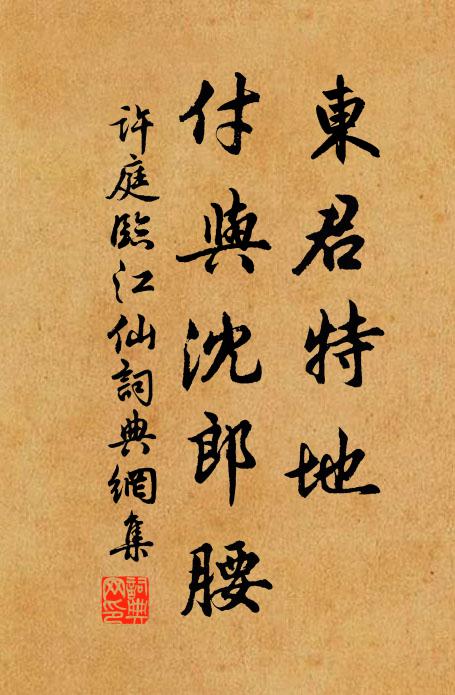 東君特地
付與沈郎腰
許庭臨江仙詞典網集
詞典網印